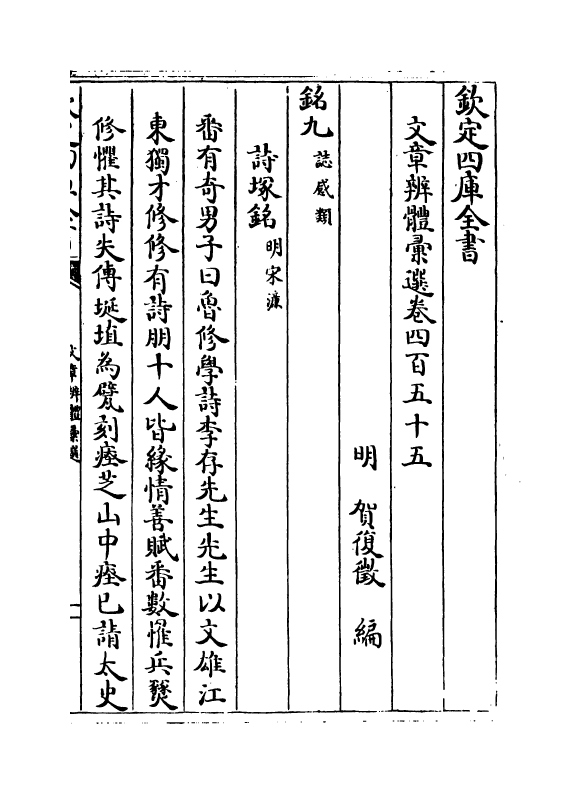 欽定四庫全書
文章辨體彚選卷四百五十五
明 賀復徵 編
銘九 誌感類
詩塚銘 明宋濂
番有奇男子曰魯修學詩李存先生先生以文雄江
東獨才修修有詩朋十人皆緣情善賦番數罹兵燹
修懼其詩失傳埏埴為甓刻瘞芝山中瘞已請太史
文章辨體彚選
一